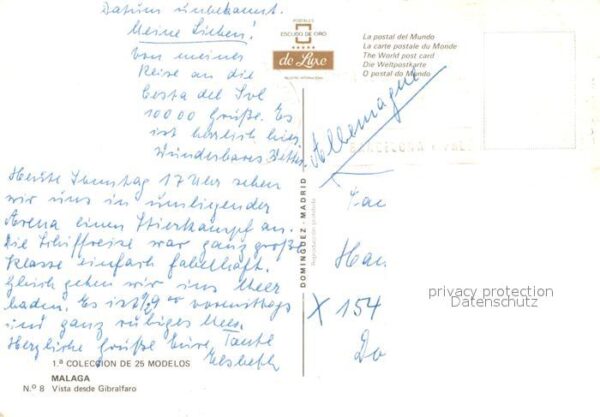 Datum unbekannt.
Meine Lieben!
Von meiner
Reise an die
Costa del Sol
10000 Grüße. Es
ist herrlich hier.
Wunderbares Wetter.
Heute Sonntag 17 Uhr sehen
wir uns in umliegender
Arena einen Stierkampf an.
Die Schiffreise war ganz große
Klasse einfach fabelhaft.
Gleich gehen wir ins Meer
baden. Es ist 1/2 9 00 vormittags
und ganz ruhiges Meer.
Herzliche Grüße Eure Tante
Elsbeth
1.ª COLECCION DE 25 MODELOS
MALAGA
N.º 8 Vista desde Gibralfaro
POSTALES
ESCUDO DE ORO
de Luxe
DOMINGUEZ - MADRID
Reproducción prohibida
La postal del Mundo
La carte postale du Monde
The World post card
Die Weltpostkarte
O postal do Mundo
BARCELONA
Allemagne
Fa
Han
X 154
Do
privacy protection
Datenschutz